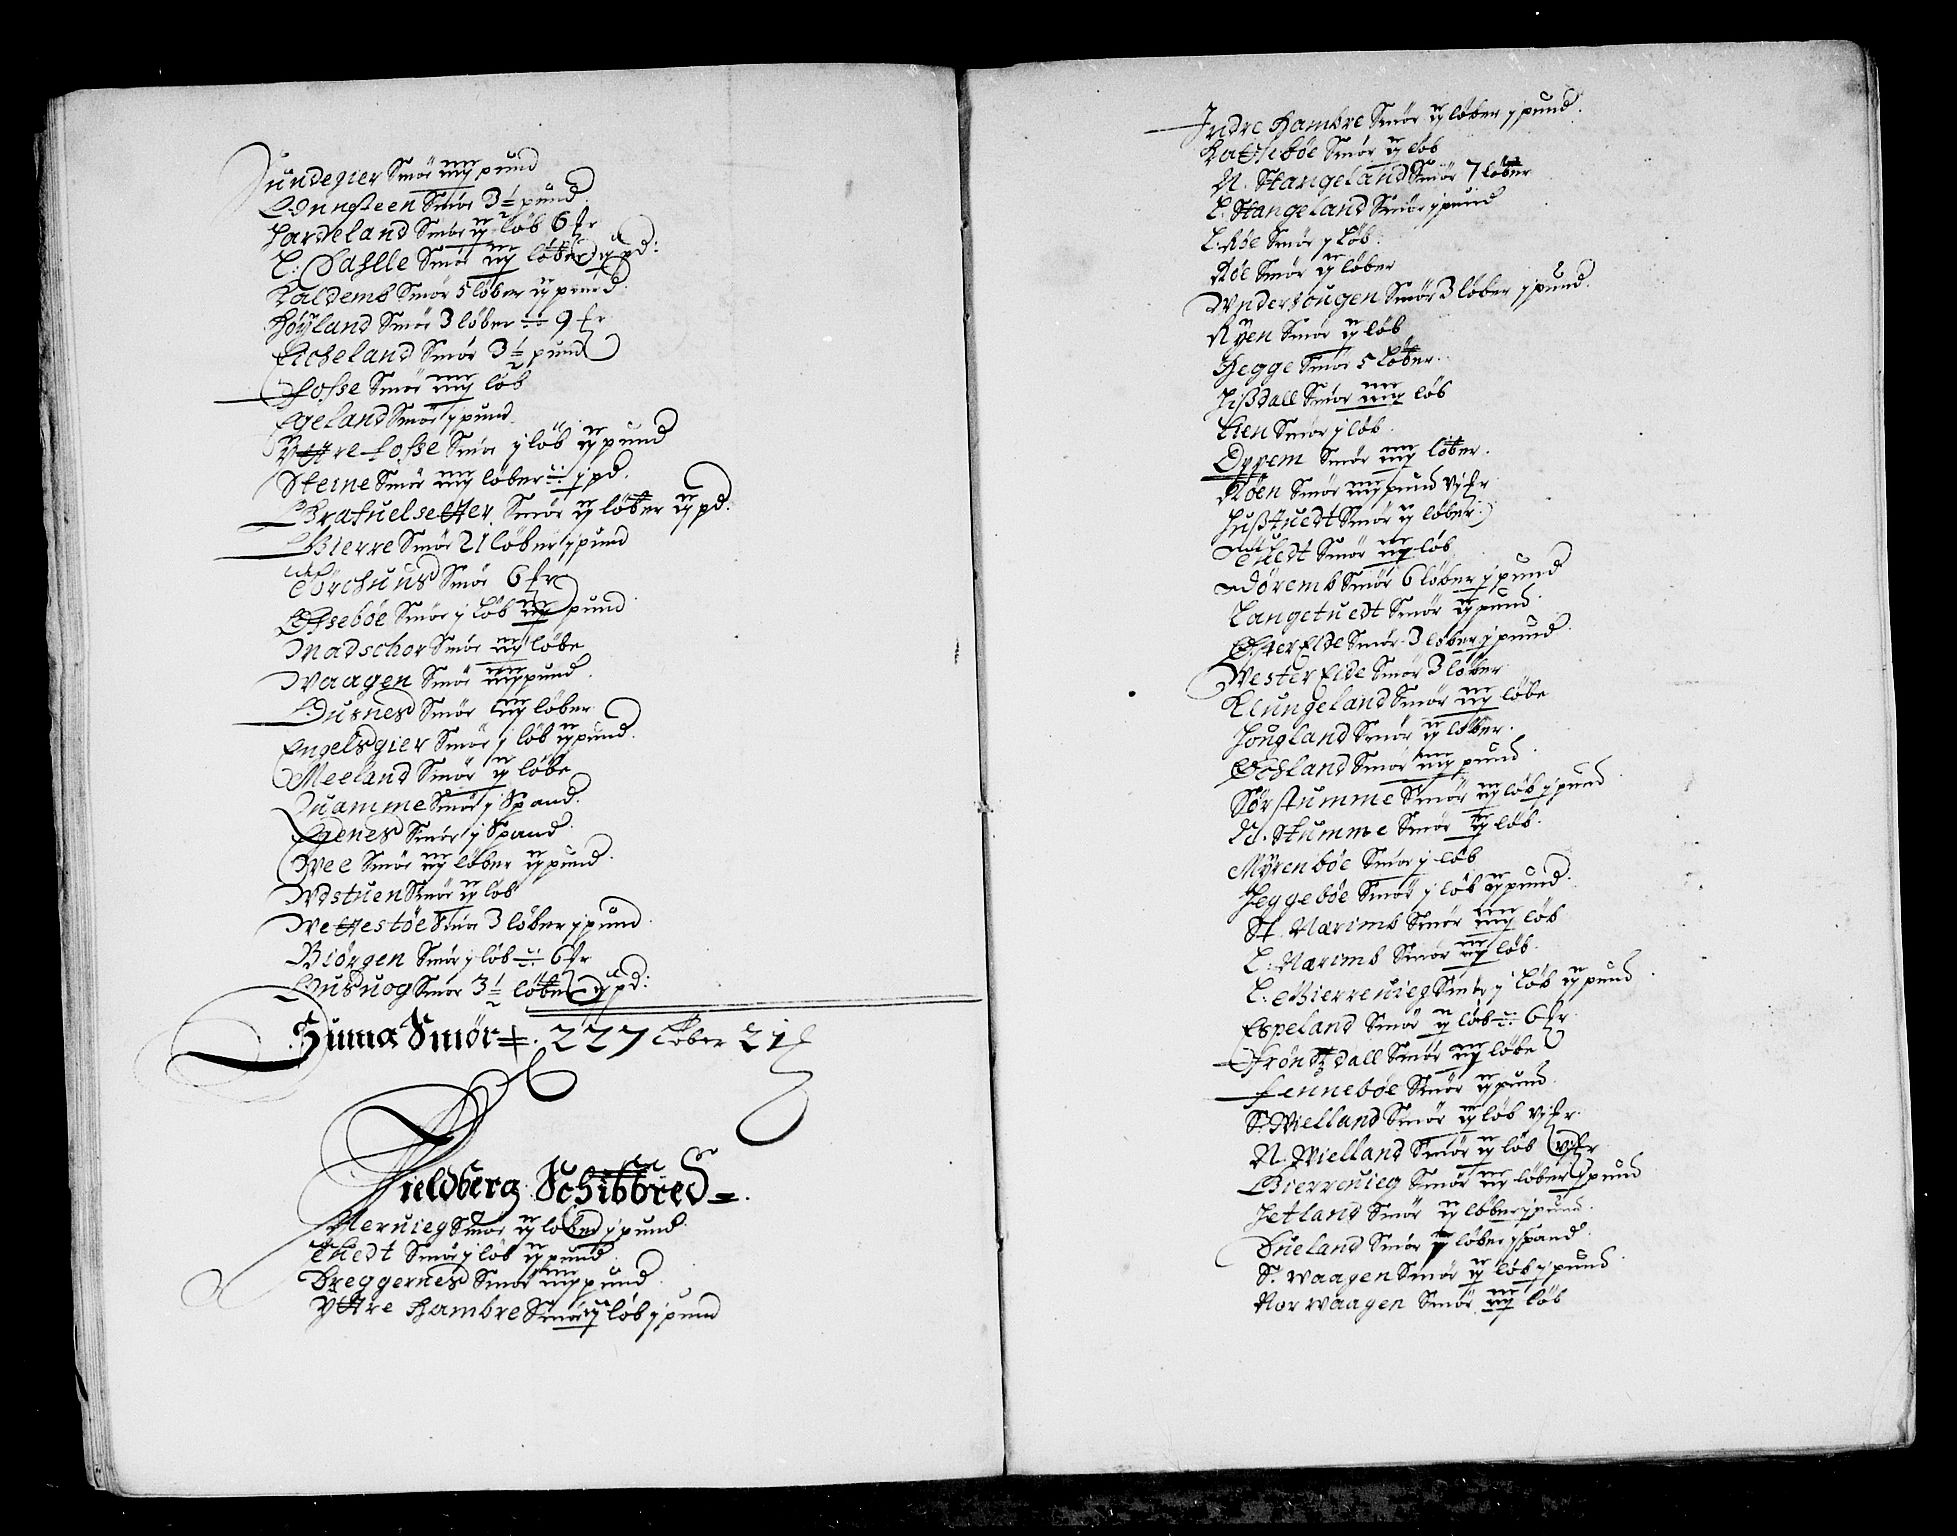 Sundegier Smör iiij pund
Onnsteen Smör 3 1/2 pund
Hardeland Smör ij løb 6 fr
L: Dahlle Smör iij løber ij pd:
Kaldemb Smör 5 løber ij pund
Høyland Smör 3 løber ÷ 9 fr
Eicheland Smör 3 1/2 pund
Fosse Smör iiij løb
Egeland Smör j pund
Yttre Fosse Smör j løb ij pund
Steine Smör iiij løber ÷ j pd.
Grafuelsetter Smör ij løber ij pd:
Bierre Smör 21 løber j pund
Smör 6 fr
Ossebøe Smör j løb pund
Madschor Smör iij løbe
Waagen Smör iiij pund
Husnes Smör iij løber
Engelsgier Smör j løb ij pund
Meeland Smör ij løbe
Quamme Smör j Spand.
Egenes Smör j Spand
Wee Smör iij løber ij pund
Vdstuen Smör ij løb
Wettestøe Smör 3 løber j pund
Biørgen Smör j løb ÷ 6 fr
Husuog Smör 3 1/2 løber ij pd:
Suma Smör 227 Løber 21
Fieldberg Schibbred
Neruieg Smör ij løber j pund
Thedt Smör j løb ij pund
Dreggernes Smör iiij pund
Yttre Hambre Smör ij løb j pund
Indre Hambre Smör ij løber j pund
Katlebøe Smör ij løb
N. Stangeland Smör 7 løber
L. Stangeland Smör j pund
L: Røe Smör j løb.
Røe Smör ij løber
Vnderhougen Smör 3 løber j pund.
Ryen Smör ij løb
Hegge Smör 5 løber.
Hißdall Smör iiij løb
Lien Smör j løb
Oppem Smör iiij løber.
Røen Smör iiij pund vj fr
Hußtuedt Smör ij løber
Tuedt Smör iij løb
Døremb Smör 6 løber j pund
Langetuedt Smör ij pund
Øster Elde Smör 3 løber j pund
Wester Elde Smör 3 løber
Klungeland Smör iij løbe
Hougland Smör ij løber.
Ochland Smör iiij pund
Sør stumme Smör iij løb j pund
N. Stumme Smör ij løb.
Myrenbøe Smör j løb
Heggebøe Smör j løb ij pund
St. Nærimb Smör iiij løb
L: Nærimb Smör iij løb
L: Bierreuieg Smör j løb ij pund
Espeland Smör ij løb ÷ 6 fr
Frøntzdall Smör iij løbe
Fennebøe Smör ij pund
S. Mielland Smör ij løb vj fr.
N. Mielland Smör ij løb vj fr
Bierreuieg Smör iij løber j pund
Hetland Smör ij løber j pund
Dueland Smör løber j Spand
S. Waagen Smör ij løb j pund
Nor waagen Smör iij løb